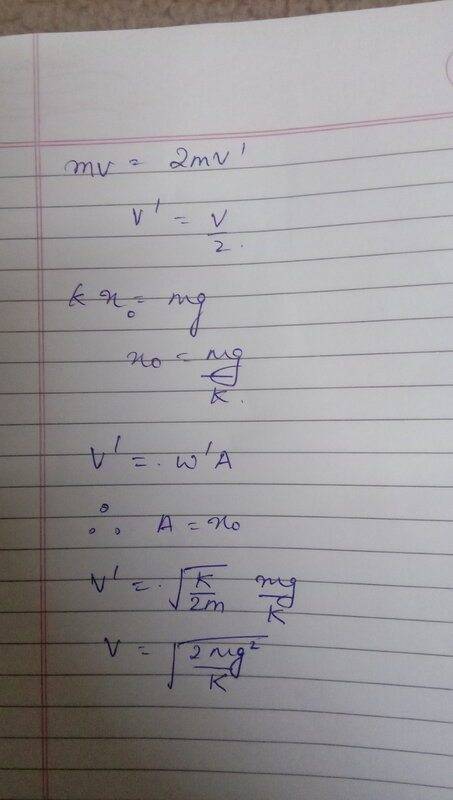 mv = 2mv'
v' = v/2.
k x₀ = mg
x₀ = mg/K.
v' = . w'A
∴ A = x₀
v' = . √(K/2m) mg/K
v = √(2mg²/K)